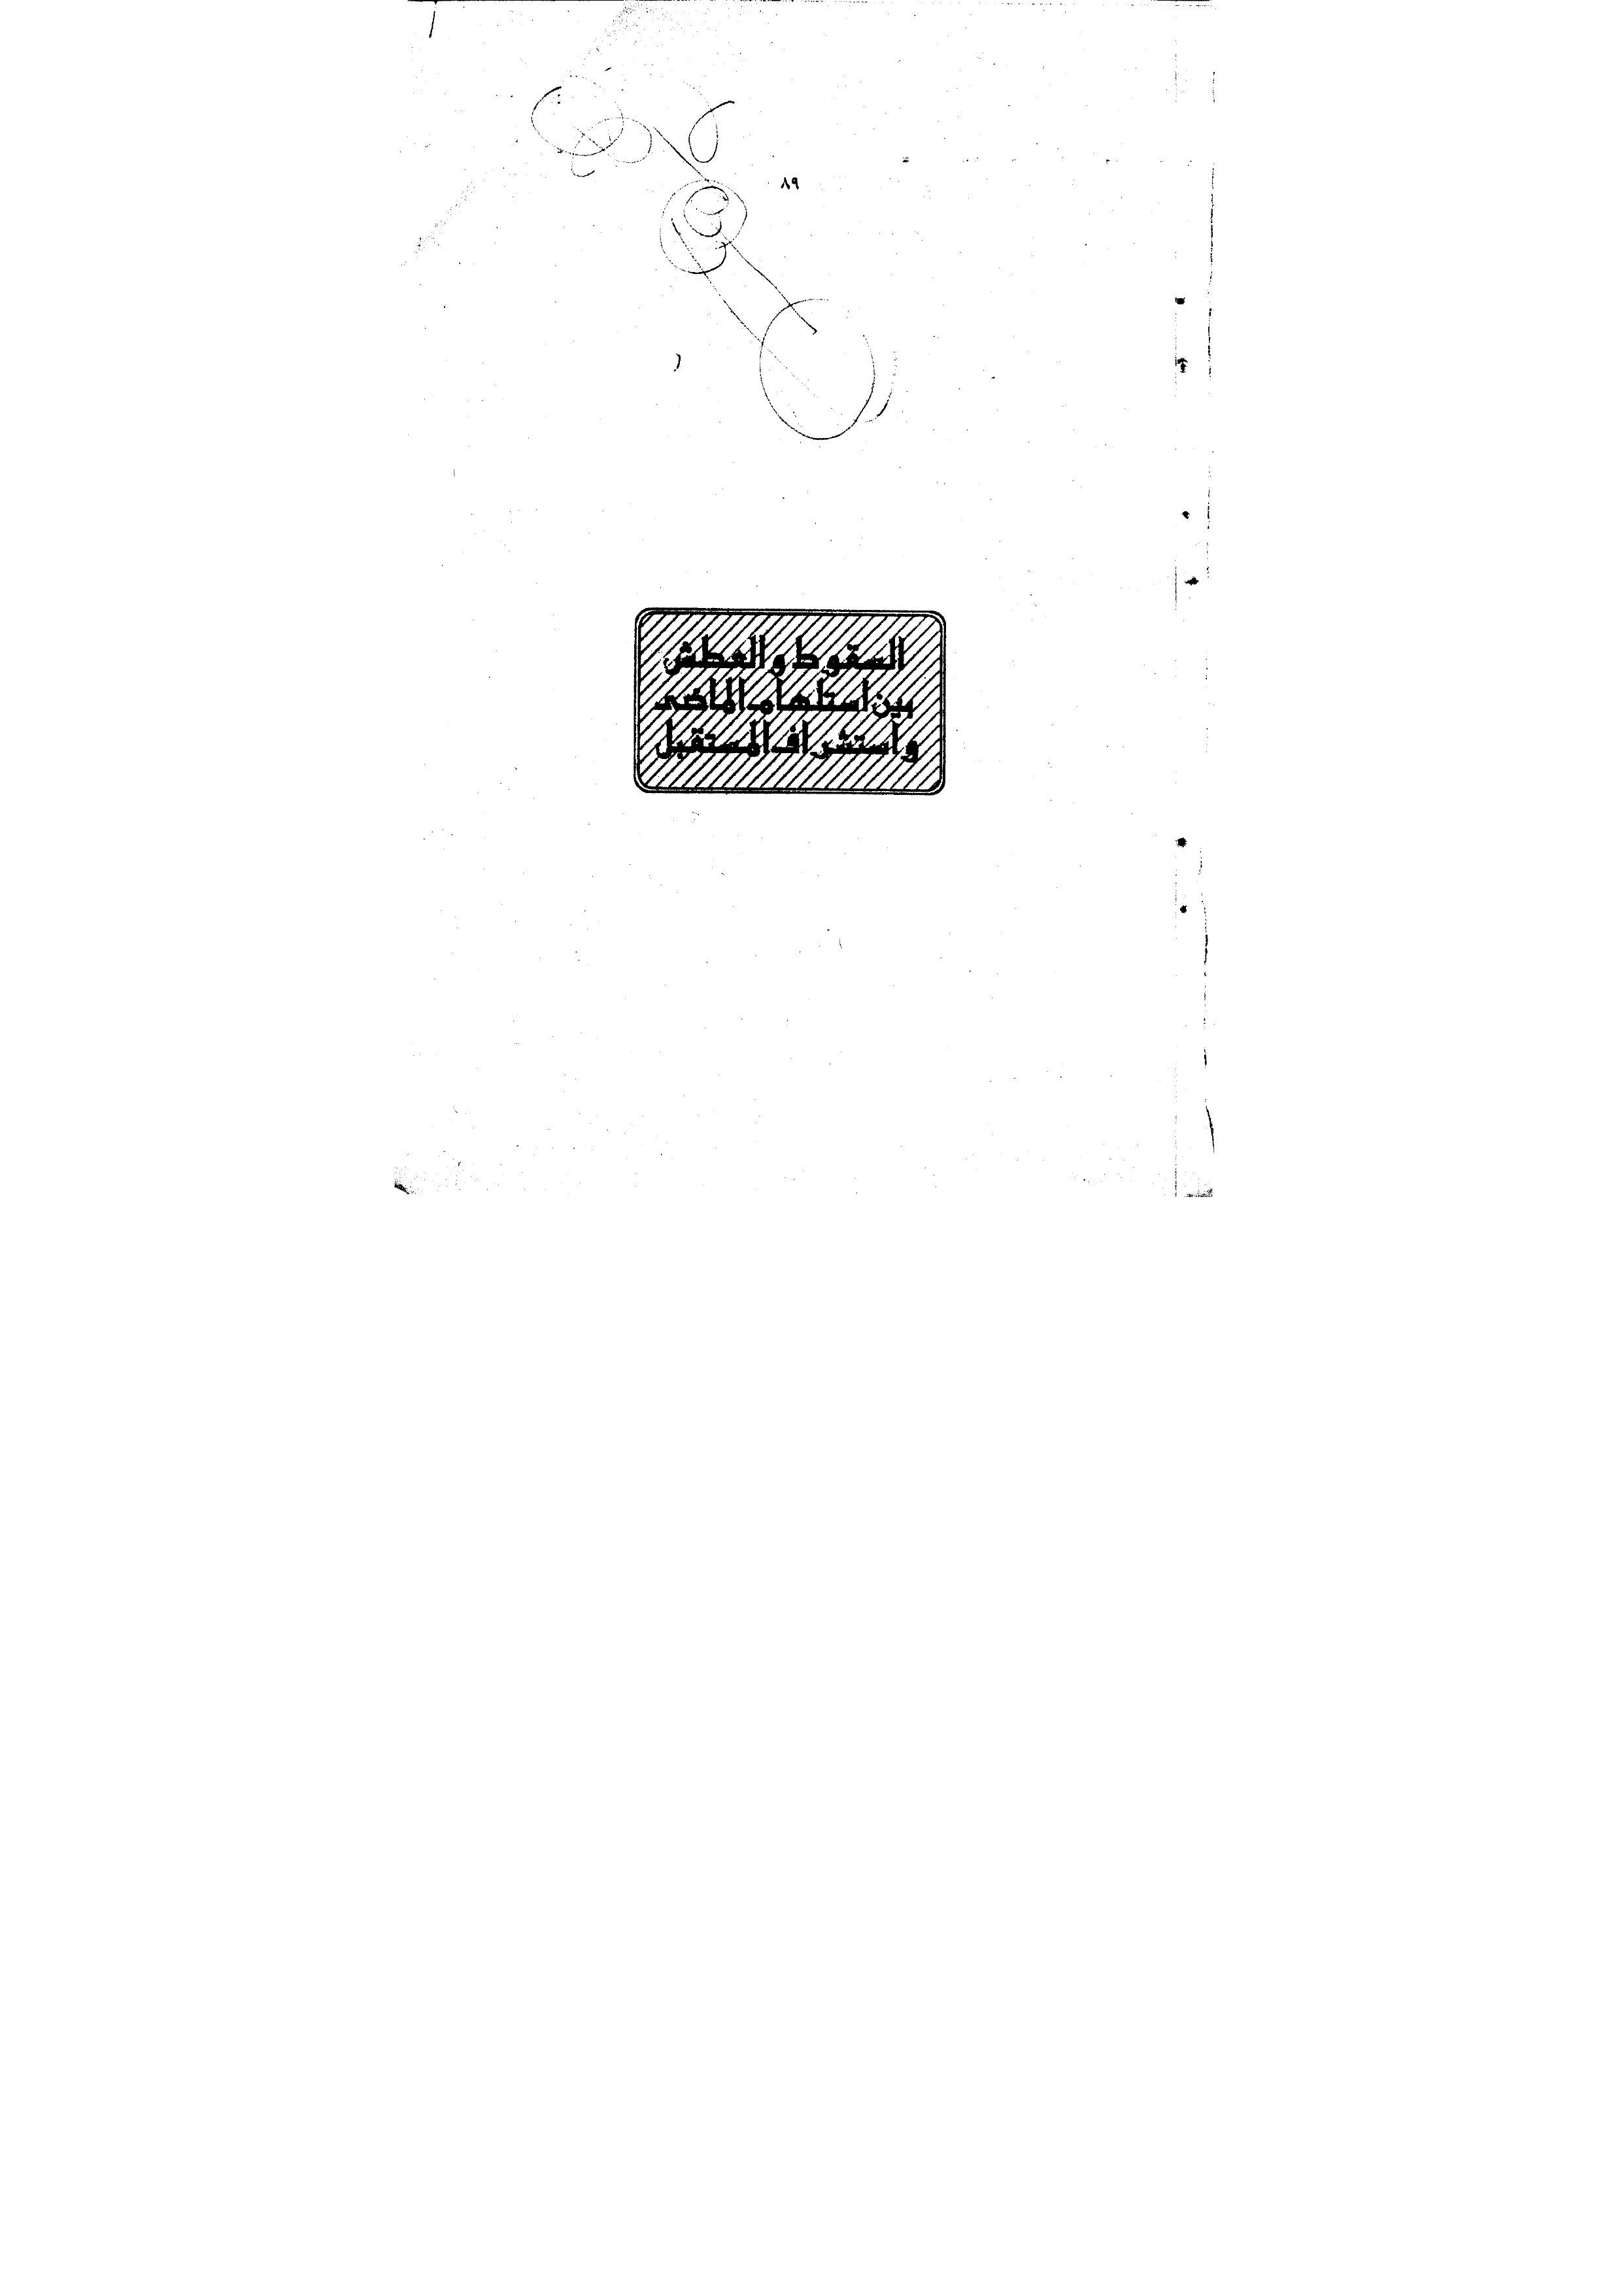 ٨٩
السقوط والعطش
بين استلهام الماضى
واستشراف المستقبل